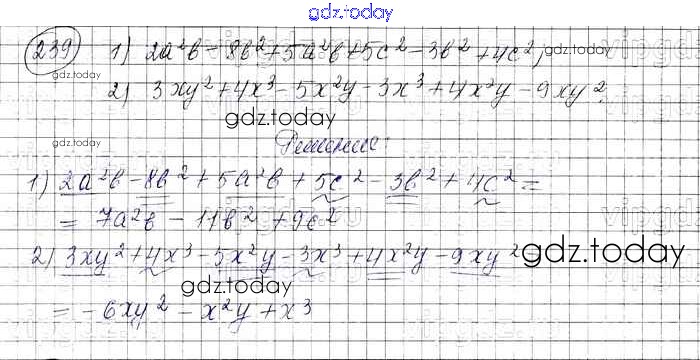 gdz.today
239 1) 2a²b - 8b² + 5a²b + 5c² - 3b² + 4c²;
gdz.today
2) 3xy² + 4x³ - 5x²y - 3x³ + 4x²y - 9xy².
gdz.today
gdz.today
Решение:
1) 2a²b - 8b² + 5a²b + 5c² - 3b² + 4c² =
= 7a²b - 11b² + 9c²
2) 3xy² + 4x³ - 5x²y - 3x³ + 4x²y - 9xy² =
gdz.today
gdz.today
= -6xy² - x²y + x³